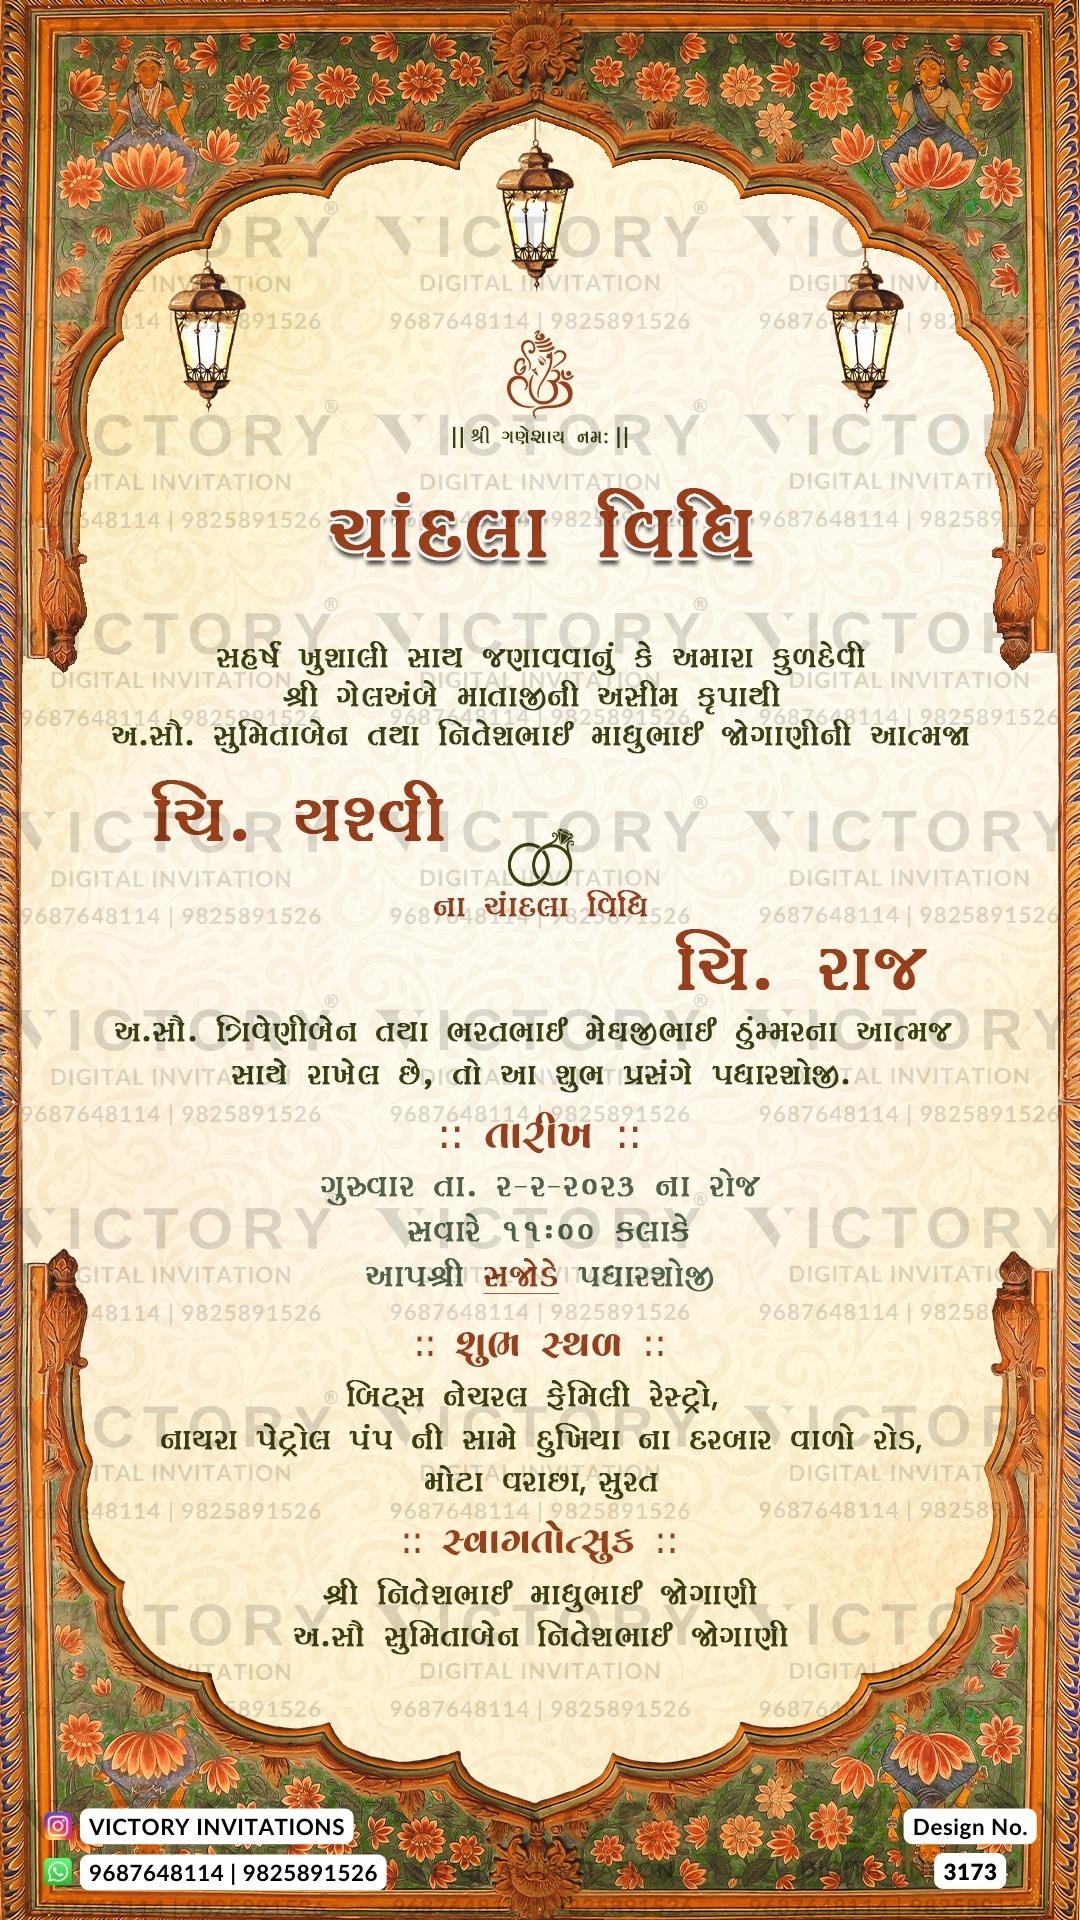 || શ્રી ગણેશાય નમ: ||
ચાંદલા વિધિ
સહર્ષ ખુશાલી સાથ જણાવવાનું કે અમારા કુળદેવી
શ્રી ગેલઅંબે માતાજીની અસીમ કૃપાથી
અ.સૌ. સુમિતાબેન તથા નિતેશભાઈ માધુભાઈ જોગાણીની આત્મજા
ચિ. યશ્વી
ના ચાંદલા વિધિ
ચિ. રાજ
અ.સૌ. ત્રિવેણીબેન તથા ભરતભાઈ મેઘજીભાઈ ઠુંમ્મરના આત્મજ
સાથે રાખેલ છે, તો આ શુભ પ્રસંગે પધારશોજી.
:: તારીખ ::
ગુરુવાર તા. ૨-૨-૨૦૨૩ ના રોજ
સવારે ૧૧:૦૦ કલાકે
આપશ્રી સજોડે પધારશોજી
:: શુભ સ્થળ ::
બિટ્સ નેચરલ ફેમિલી રેસ્ટ્રો,
નાયરા પેટ્રોલ પંપ ની સામે દુખિયા ના દરબાર વાળો રોડ,
મોટા વરાછા, સુરત
:: સ્વાગતોત્સુક ::
શ્રી નિતેશભાઈ માધુભાઈ જોગાણી
અ.સૌ સુમિતાબેન નિતેશભાઈ જોગાણી
VICTORY INVITATIONS
9687648114 | 9825891526
Design No.
3173
VICTORY®
DIGITAL INVITATION
9687648114 | 9825891526